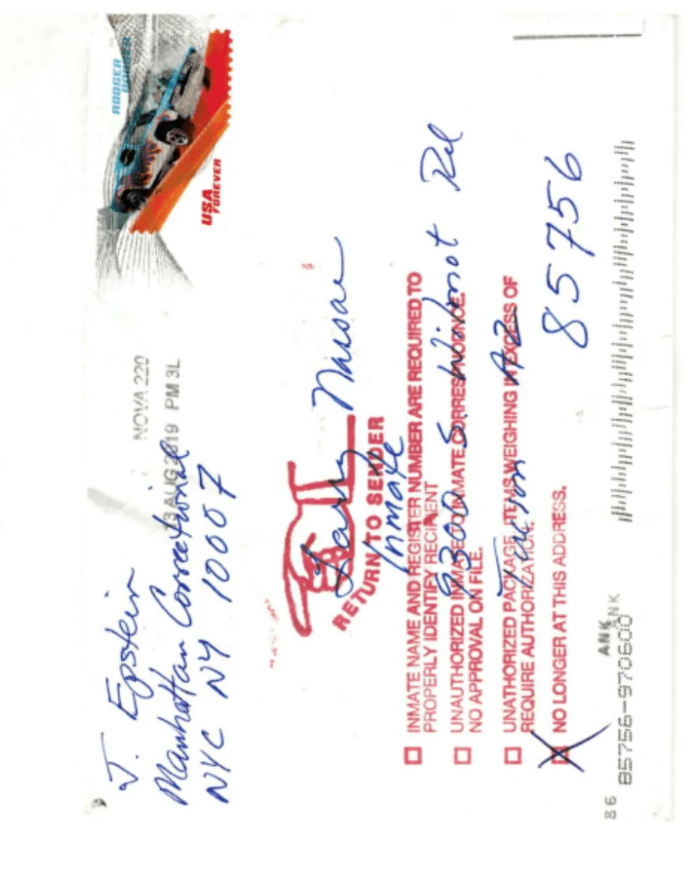 J. Epstein
Manhattan Correctional
NYC NY 10007
NOVA 220
AUG 2019 PM 3L
RODGER
USA
FOREVER
Larry Nassar
Inmate
9300 S. Wilmot Rd
Tucson AZ
85756
RETURN TO SENDER
INMATE NAME AND REGISTER NUMBER ARE REQUIRED TO
PROPERLY IDENTIFY RECIPIENT
UNAUTHORIZED INMATE TO INMATE CORRESPONDENCE.
NO APPROVAL ON FILE.
UNATHORIZED PACKAGE, ITEMS WEIGHING IN EXCESS OF
REQUIRE AUTHORIZATION.
X NO LONGER AT THIS ADDRESS.
ANK
ANK
86 85756-970600